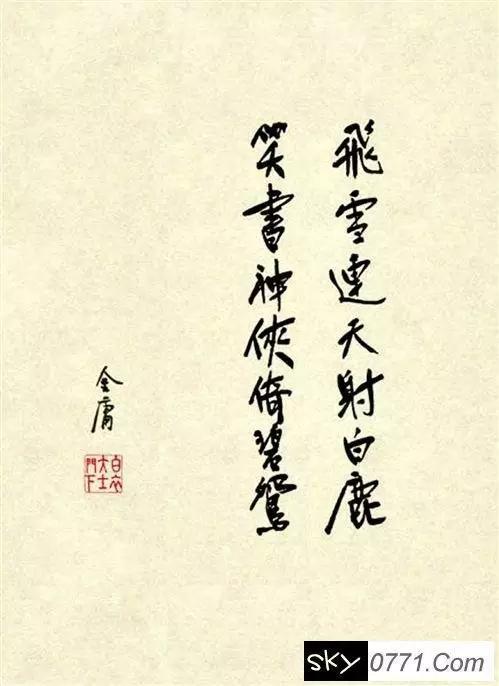 飛雪連天射白鹿
笑書神俠倚碧鴛
金庸
白衣
大士
門下
sky0771.Com